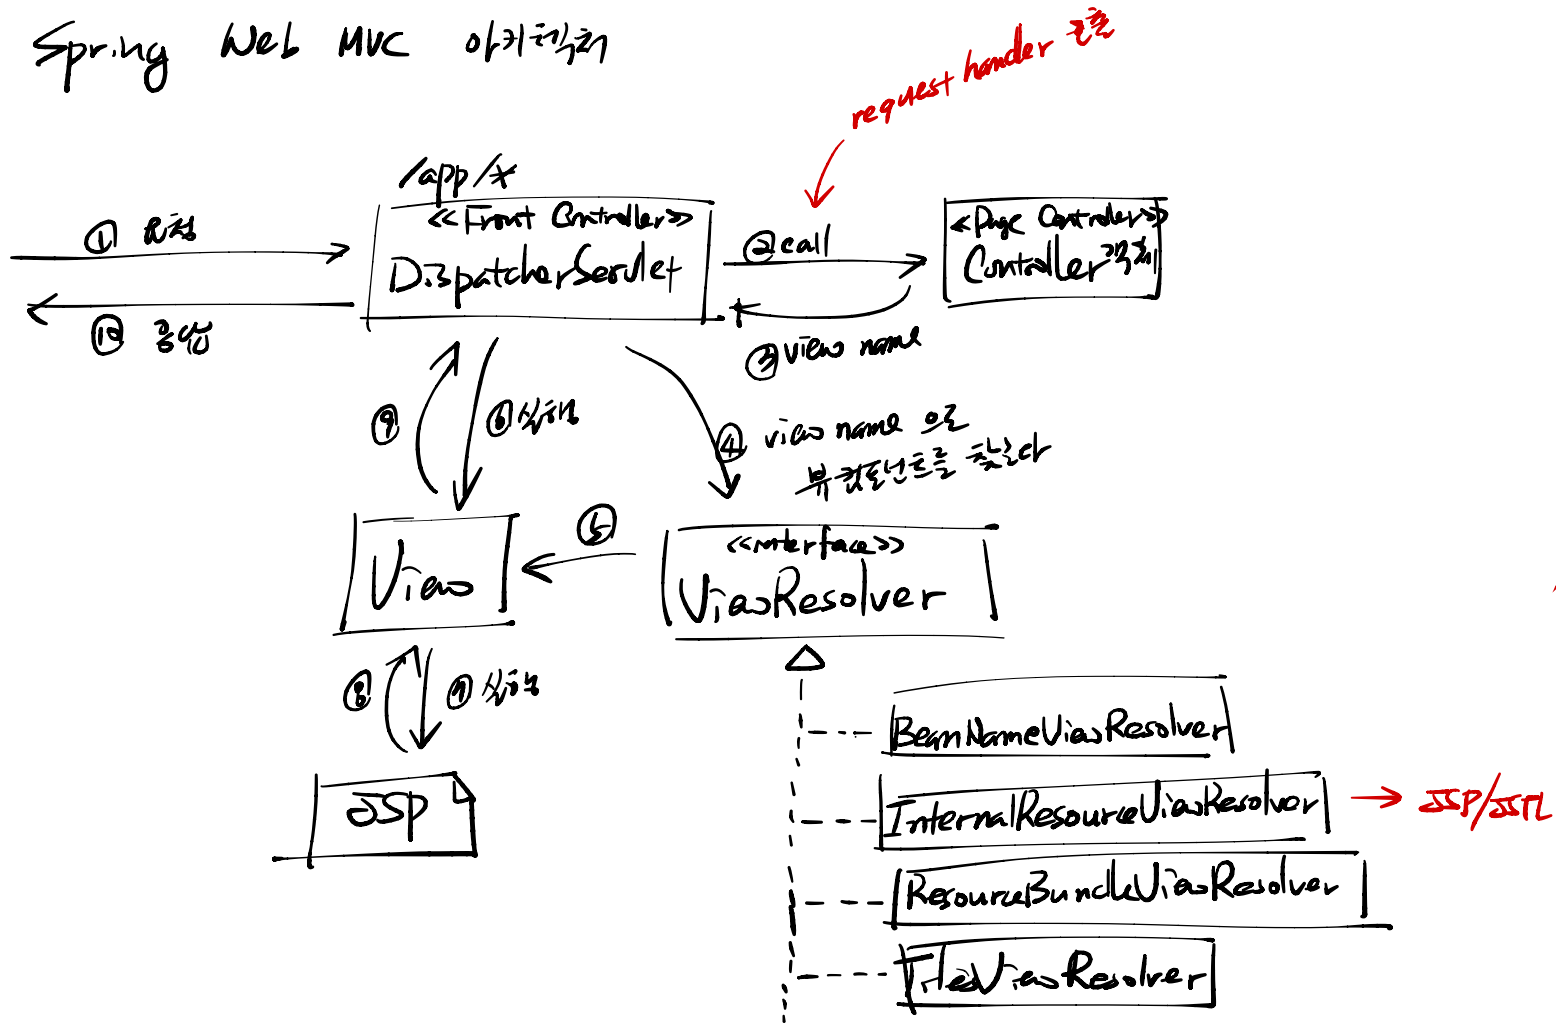 Spring Web MVC 아키텍처
request hander 호출
/app/*
① 요청
<<Front Controller>>
DispatcherServlet
② call
<<Page Controller>>
Controller 객체
⑩ 응답
③ view name
⑨
⑥ 실행
④ view name 으로
뷰 컴포넌트를 찾는다
⑤
View
<<interface>>
ViewResolver
⑧
⑦ 실행
JSP
BeanNameViewResolver
InternalResourceViewResolver
JSP/JSTL
ResourceBundleViewResolver
TilesViewResolver